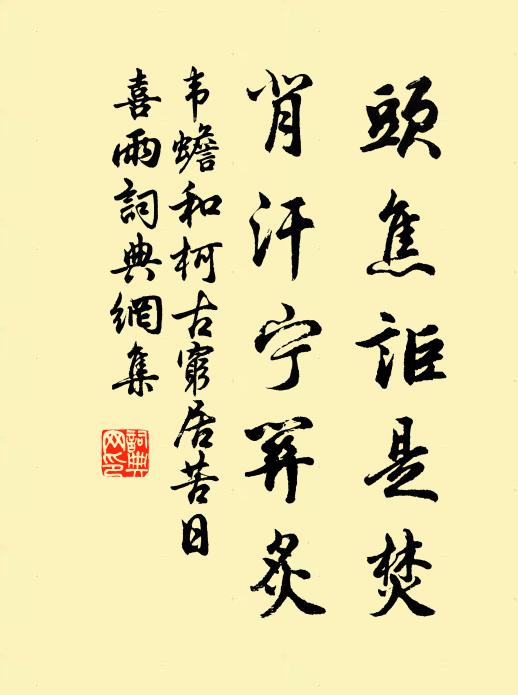 頭焦詎是焚
背汗宁關炙
韦蟾和柯古窮居苦日
喜雨詞典網集
詞典网印